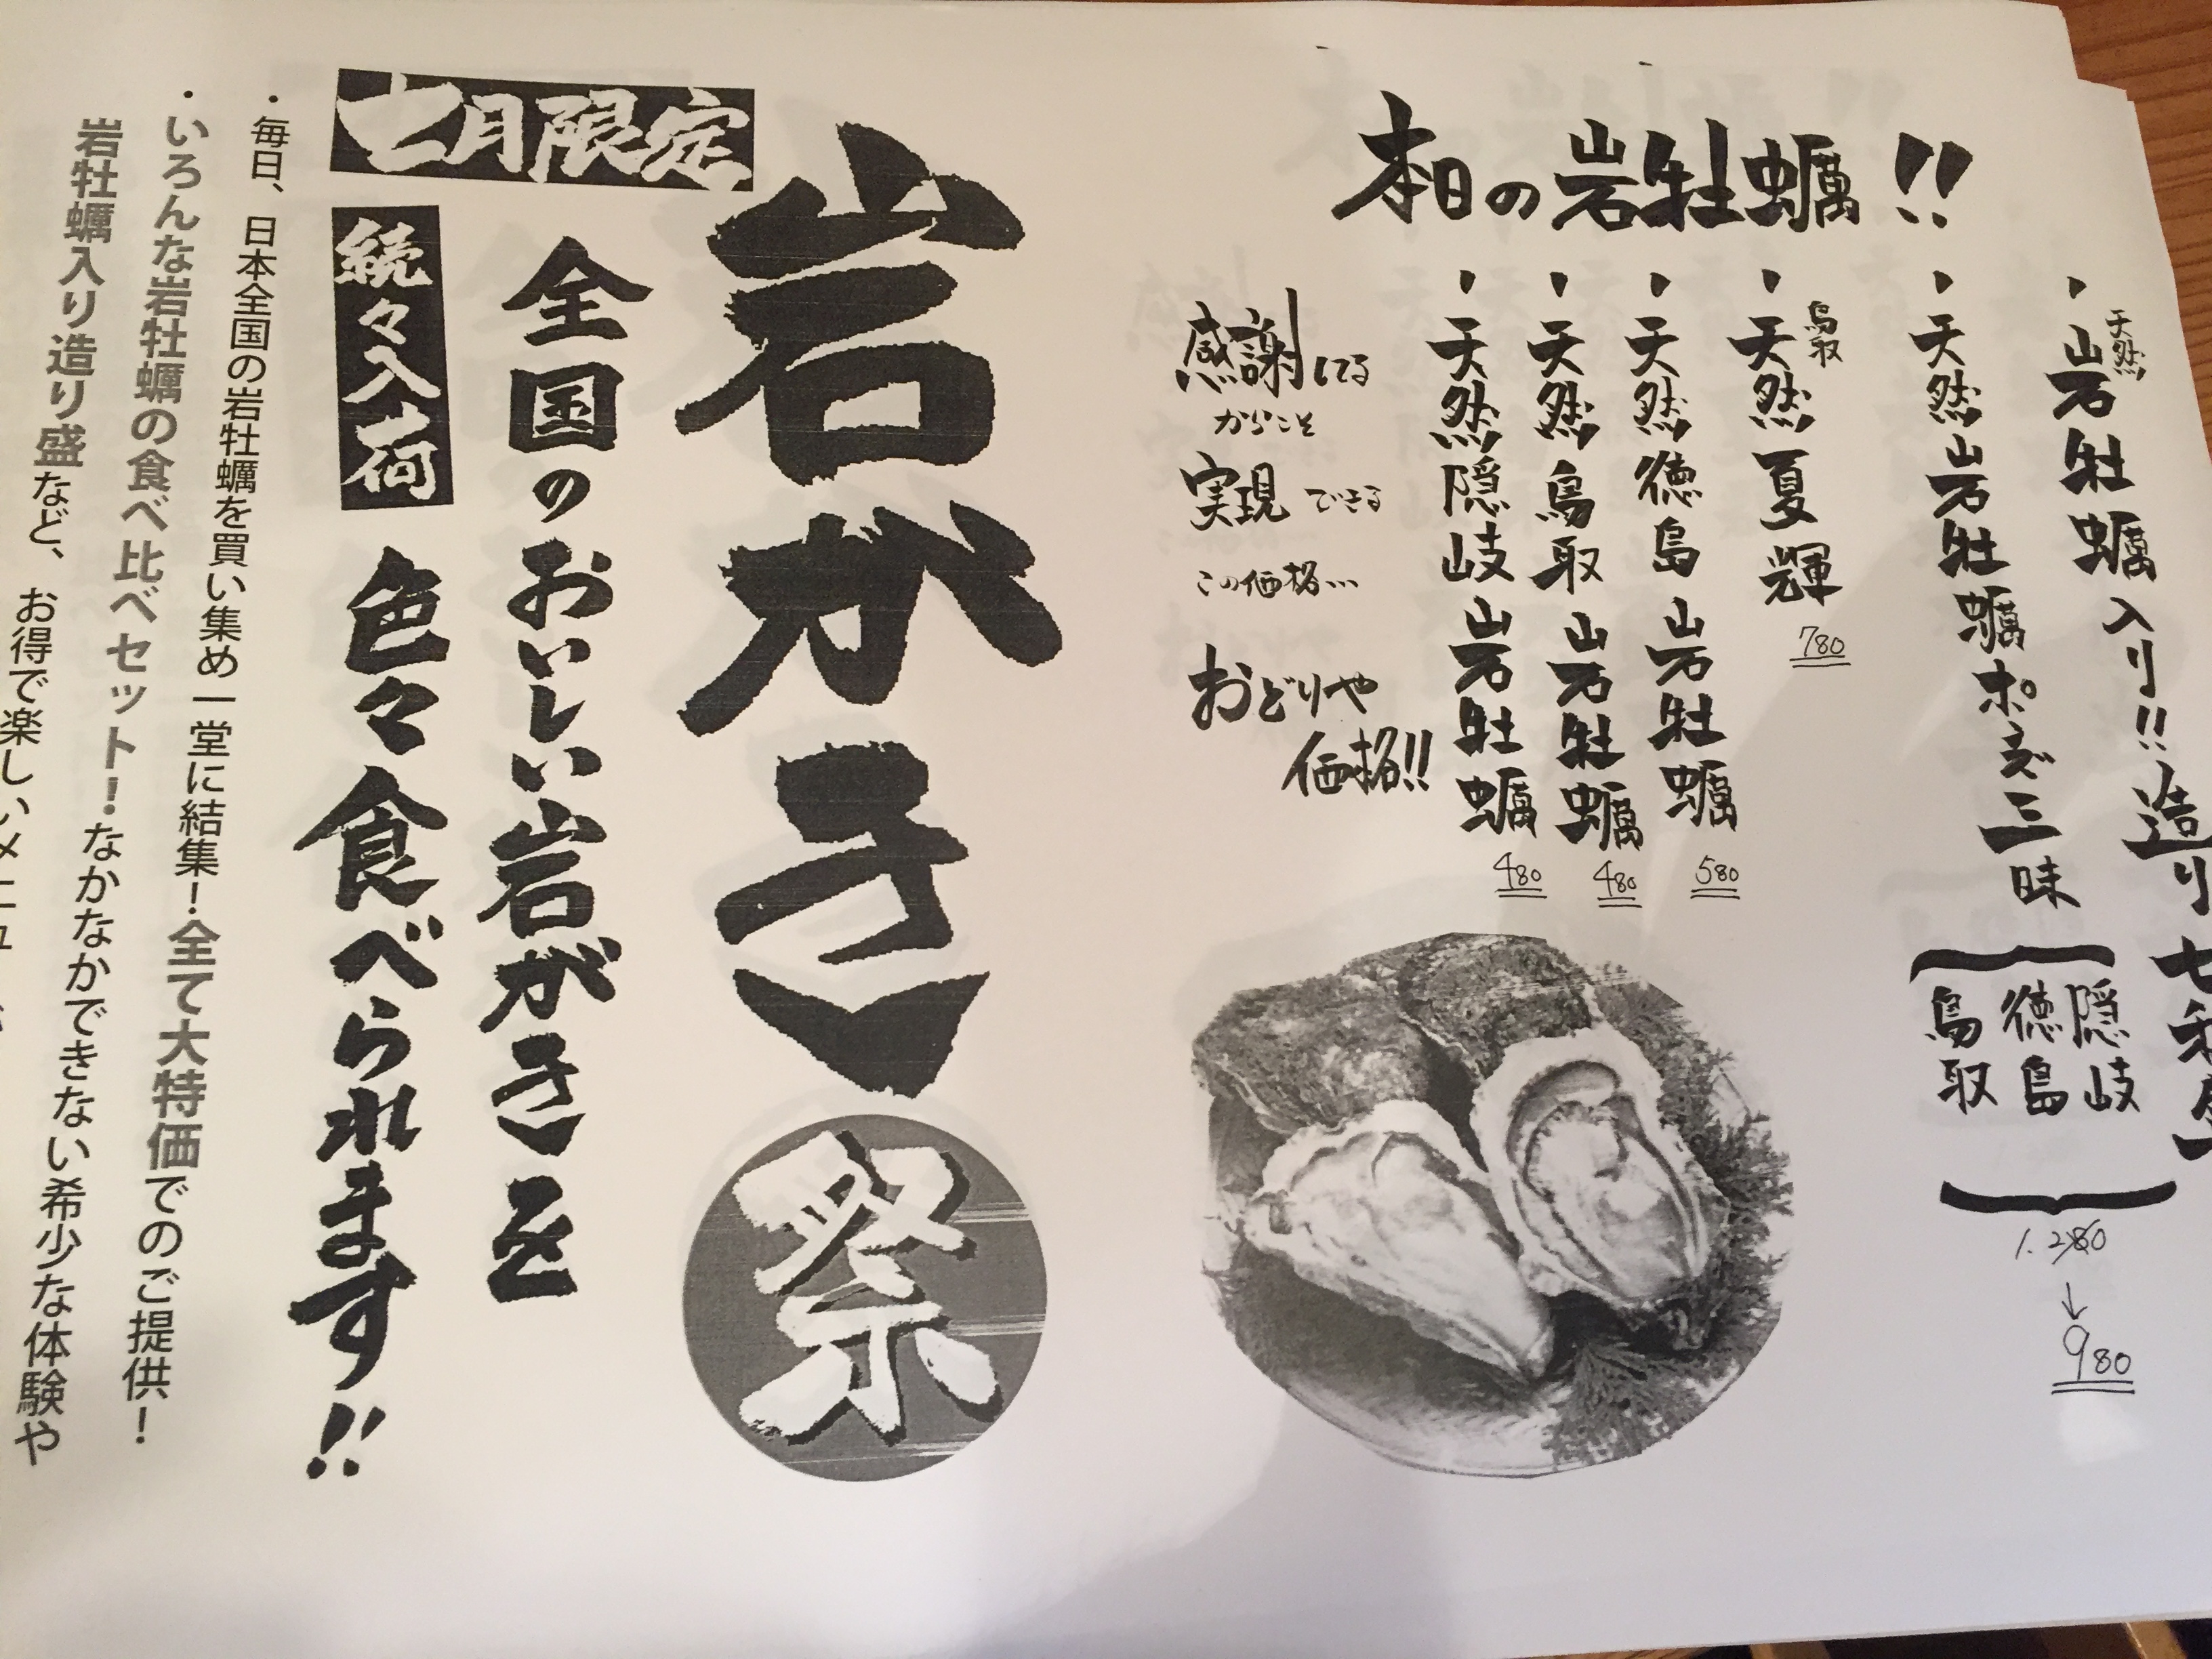 本日の岩牡蠣!!
・天然岩牡蠣入り!!造り七種
・天然岩牡蠣ポン三昧
隠岐
徳島
鳥取
1.280
↓
980
・鳥取天然夏輝
780
・天然徳島岩牡蠣
580
・天然鳥取岩牡蠣
480
・天然隠岐岩牡蠣
480
感謝してる
からこそ
実現できる
この価格…
おどりや
価格!!
七月限定
岩がき祭
全国のおいしい岩がきを
続々入荷
色々食べられます!!
・毎日、日本全国の岩牡蠣を買い集め一堂に結集!全て大特価でのご提供!
・いろんな岩牡蠣の食べ比べセット!なかなかできない希少な体験や
岩牡蠣入り造り盛など、お得で楽しいメニュー